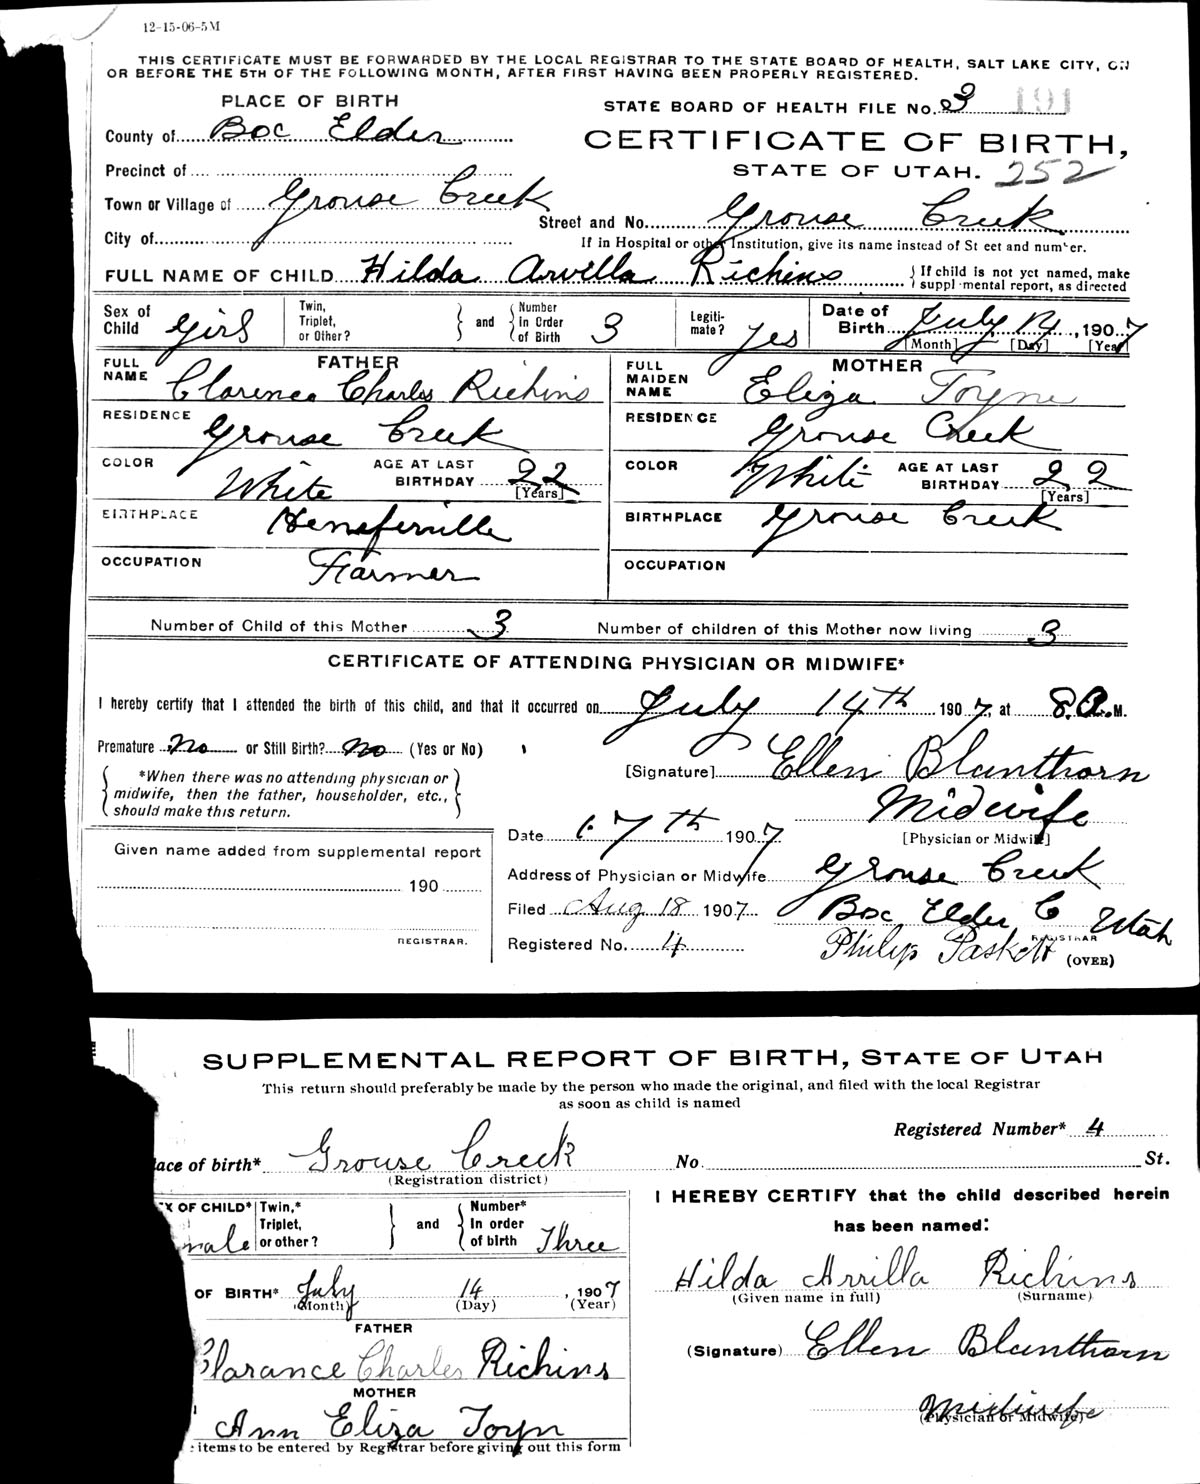 12-15-06-5M
THIS CERTIFICATE MUST BE FORWARDED BY THE LOCAL REGISTRAR TO THE STATE BOARD OF HEALTH, SALT LAKE CITY, ON
OR BEFORE THE 5TH OF THE FOLLOWING MONTH, AFTER FIRST HAVING BEEN PROPERLY REGISTERED.
PLACE OF BIRTH
STATE BOARD OF HEALTH FILE No. 3 191
County of Box Elder
CERTIFICATE OF BIRTH,
Precinct of
STATE OF UTAH. 252
Town or Village of Grouse Creek
Street and No. Grouse Creek
City of
If in Hospital or other Institution, give its name instead of St eet and number.
FULL NAME OF CHILD Hilda Arvilla Richins
If child is not yet named, make
suppl mental report, as directed
Sex of Child Girl
Twin, Triplet, or Other?
and
Number in Order of Birth 3
Legiti-mate? Yes
Date of Birth July 14, 1907
[Month] [Day] [Year]
FATHER
MOTHER
FULL NAME Clarence Charles Richins
FULL MAIDEN NAME Eliza Toyne
RESIDENCE Grouse Creek
RESIDENCE Grouse Creek
COLOR White AGE AT LAST BIRTHDAY 22 [Years]
COLOR White AGE AT LAST BIRTHDAY 22 [Years]
BIRTHPLACE Heneferville
BIRTHPLACE Grouse Creek
OCCUPATION Farmer
OCCUPATION
Number of Child of this Mother 3
Number of children of this Mother now living 3
CERTIFICATE OF ATTENDING PHYSICIAN OR MIDWIFE*
I hereby certify that I attended the birth of this child, and that it occurred on July 14th 1907, at 8 A.M.
Premature No or Still Birth? No (Yes or No)
[Signature] Ellen Blanthorn
*When there was no attending physician or
midwife, then the father, householder, etc.,
should make this return.
Midwife
[Physician or Midwife]
Date 17th 1907
Given name added from supplemental report
190
REGISTRAR.
Address of Physician or Midwife Grouse Creek
Filed Aug 18 1907
Box Elder C Utah
REGISTRAR
Registered No. 4
Philip Paskett
(OVER)
SUPPLEMENTAL REPORT OF BIRTH, STATE OF UTAH
This return should preferably be made by the person who made the original, and filed with the local Registrar
as soon as child is named
Registered Number* 4
ace of birth* Grouse Creek
(Registration district)
No. St.
X OF CHILD* male
Twin,* Triplet, or other?
and
Number* In order of birth Three
I HEREBY CERTIFY that the child described herein
has been named:
OF BIRTH* July 14, 1907
(Month) (Day) (Year)
Hilda Arrilla Richins
(Given name in full) (Surname)
FATHER
Clarance Charles Richins
(Signature) Ellen Blanthorn
MOTHER
Ann Eliza Toyn
Midwife
(Physician or Midwife)
items to be entered by Registrar before giving out this form